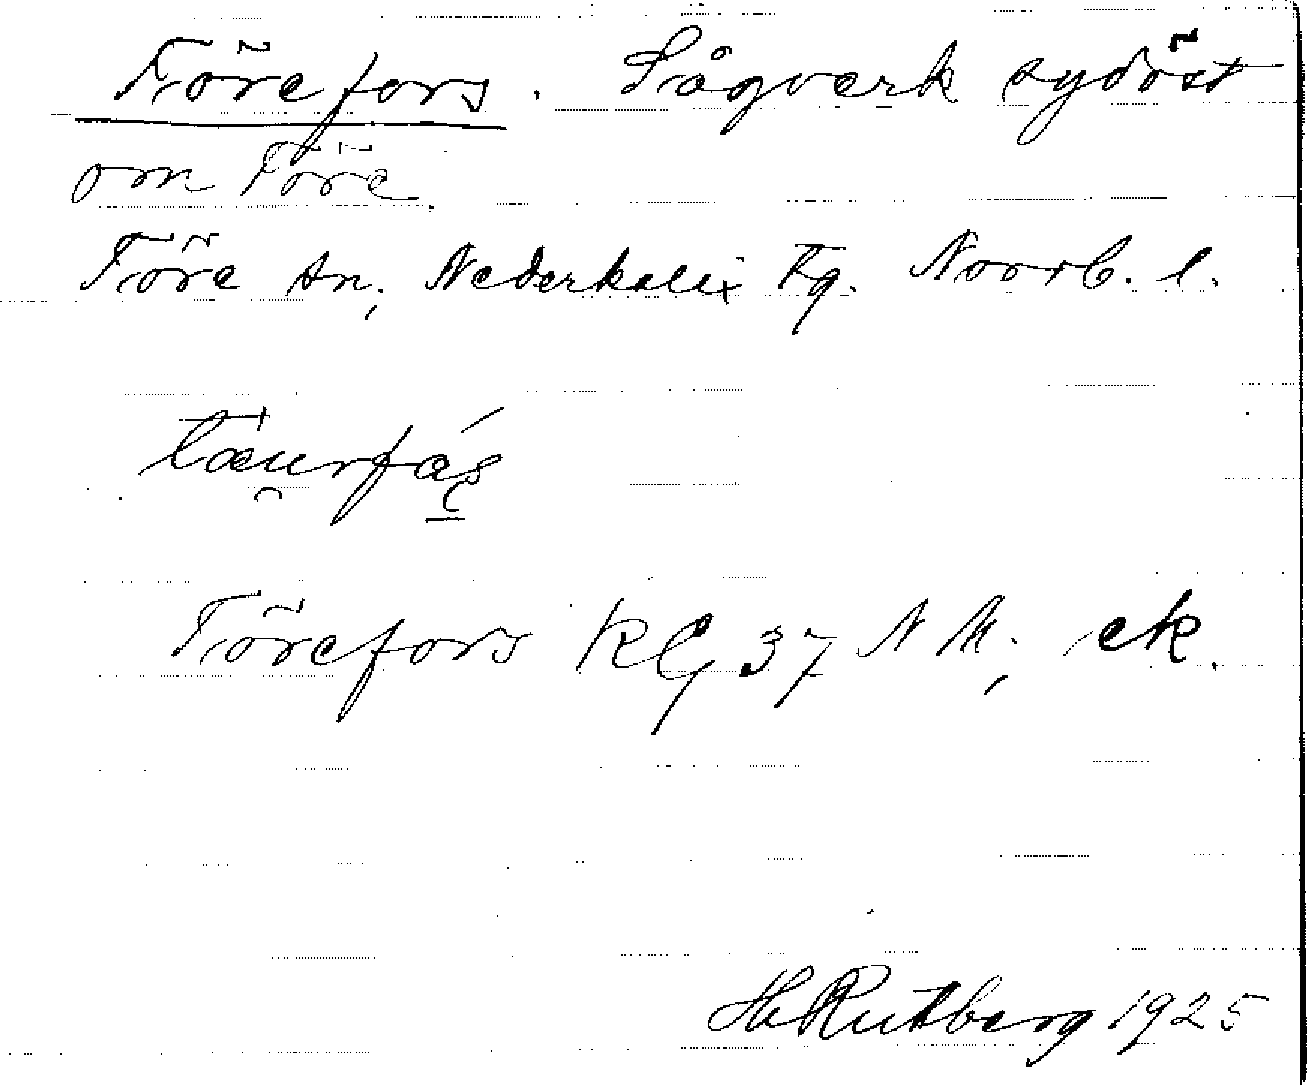 Törefors. Sågverk sydöst
om Töre.
Töre sn, Nederkalix Tg. Norrb. l.
Törefors RG 37 NM, ek.
H Rutberg 1925